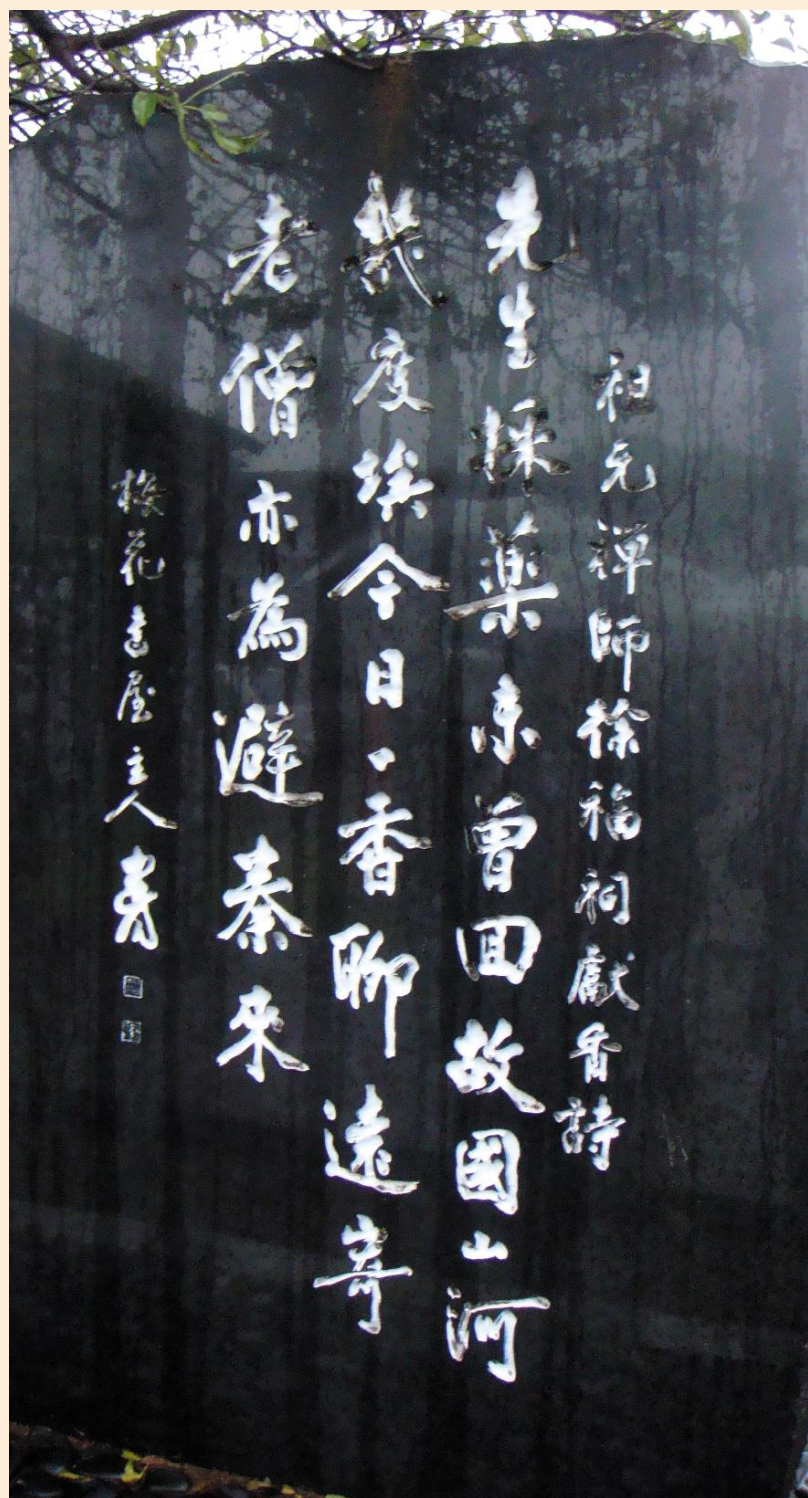 祖元禅師徐福祠獻香詩
先生採薬未曽回故國山河
幾度埃今日一香聊遠寄
老僧亦為避秦来
梅花書屋主人